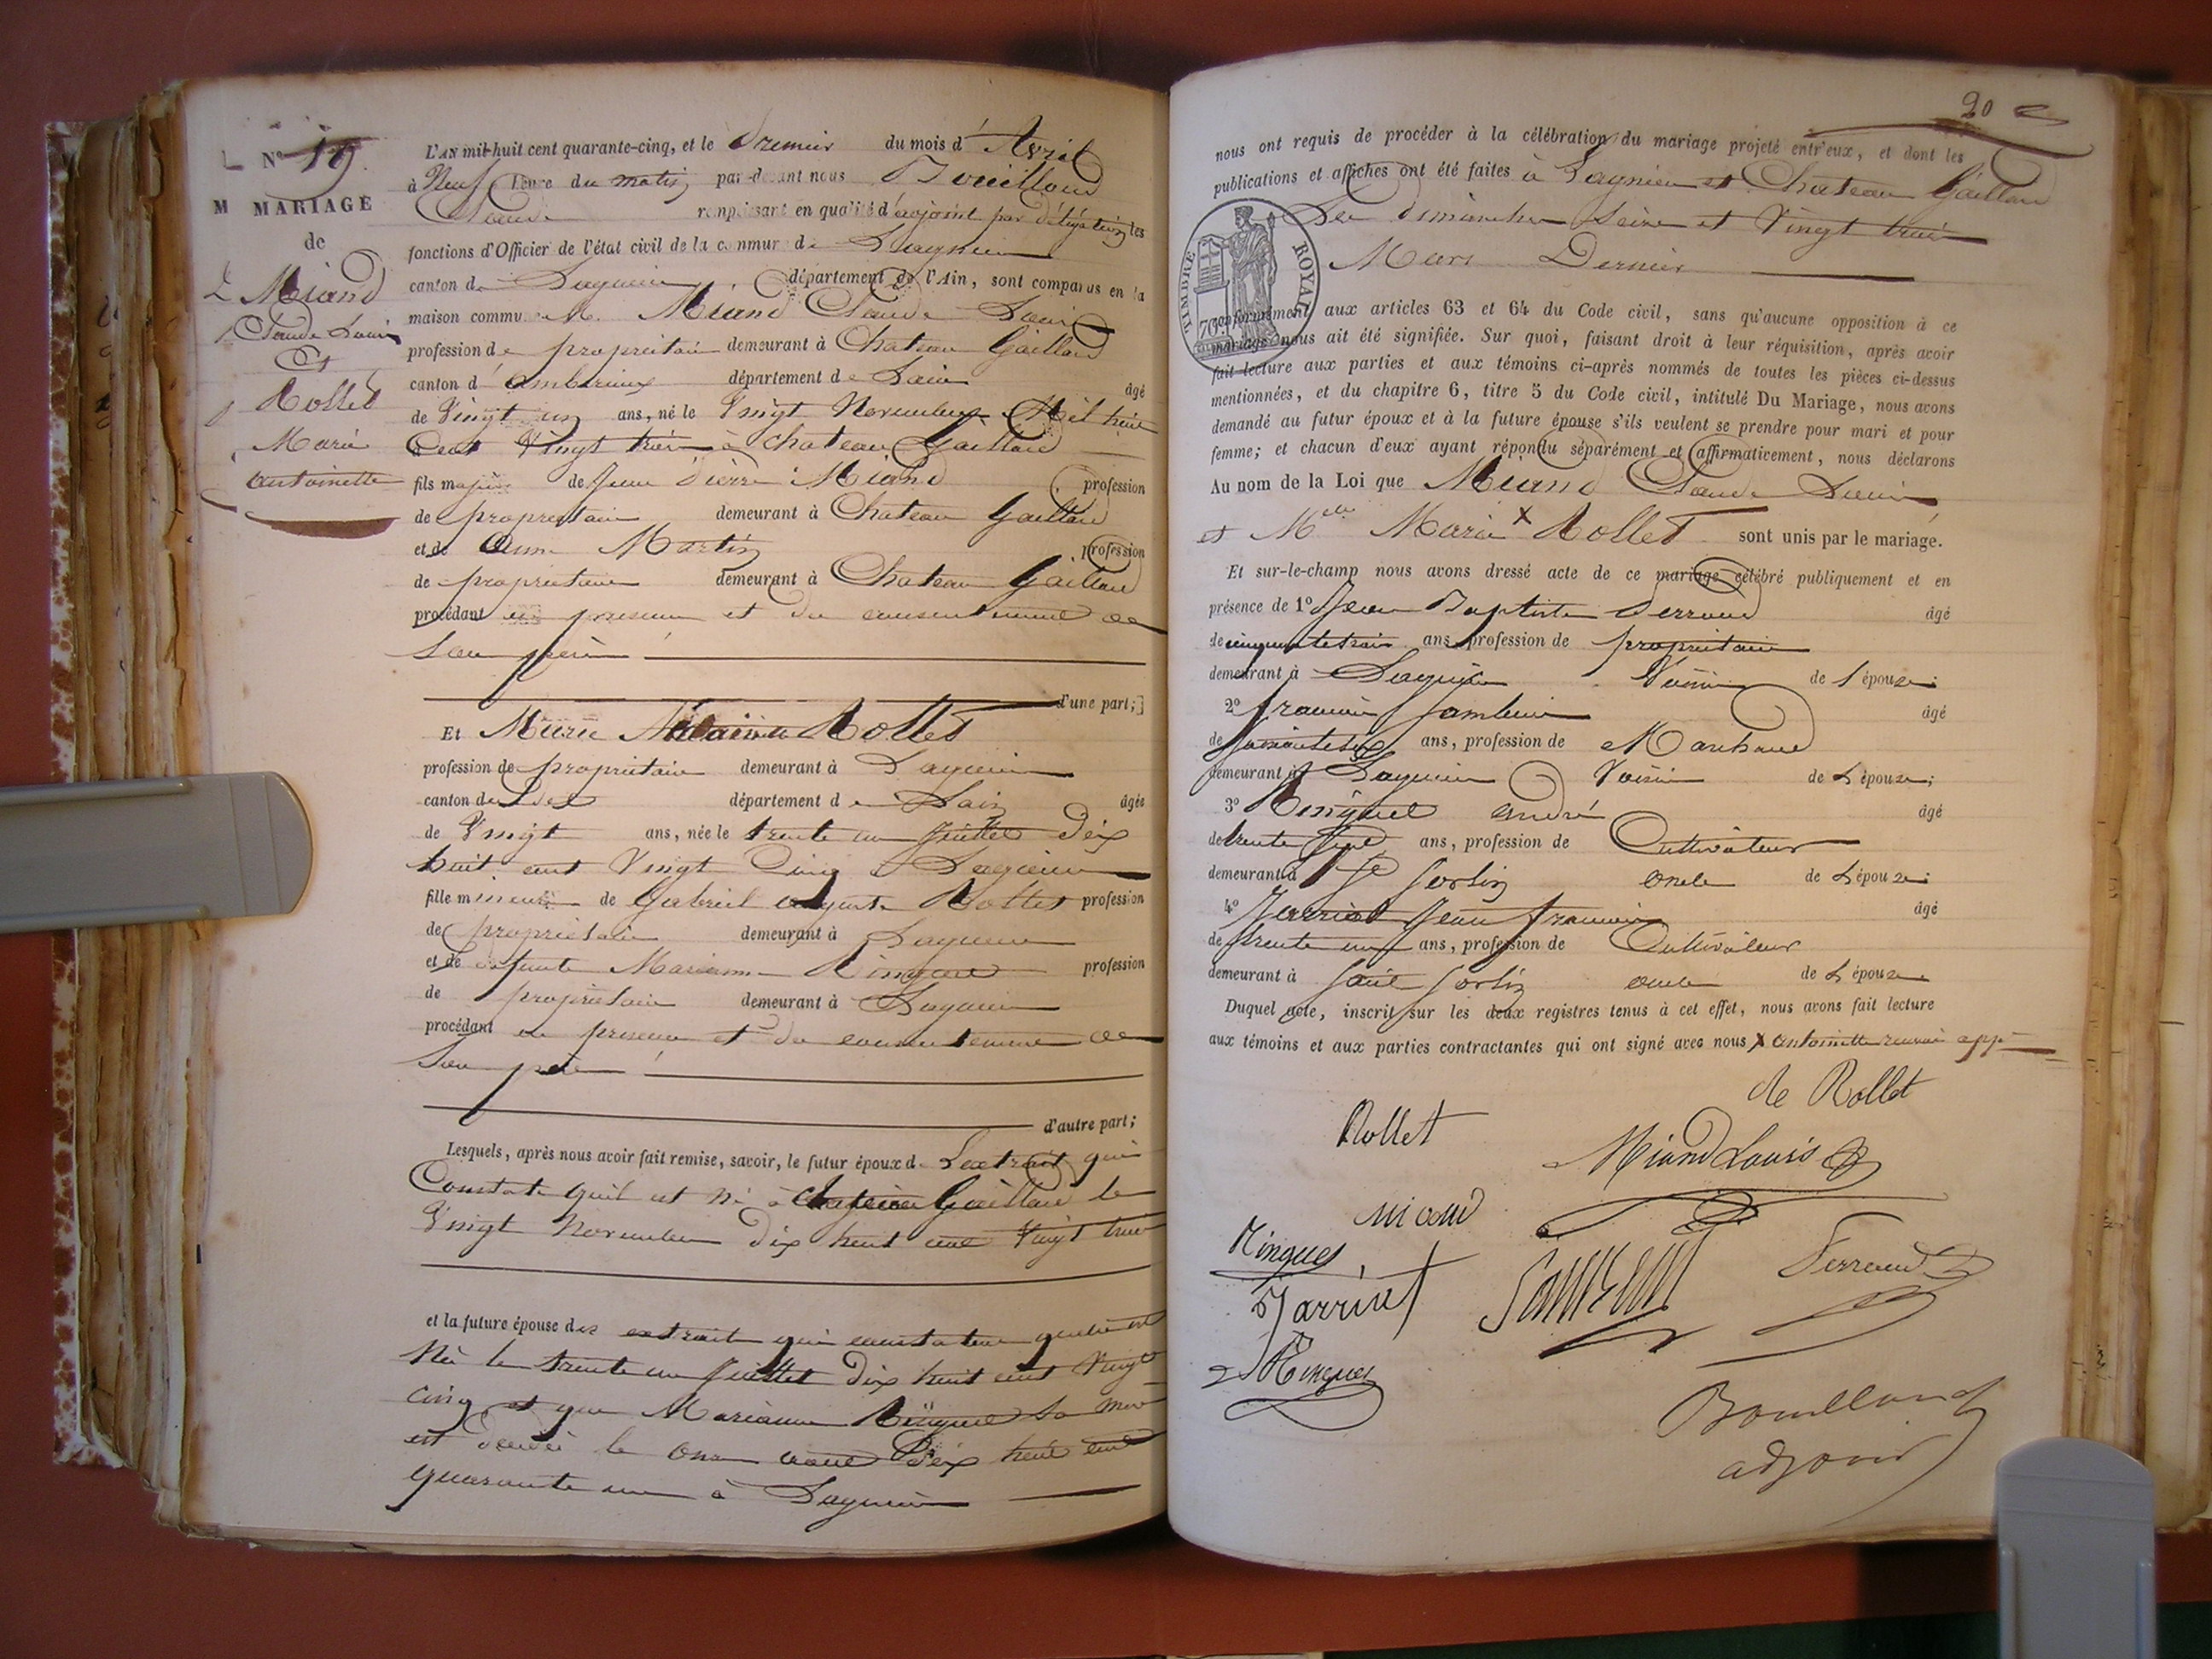 N° 19
MARIAGE
de
Miand
Claude Louis
Et
Rollet
Marie
antoinette
L'AN mil-huit cent quarante-cinq, et le Premier du mois d'Avril
à Neuf heure du matin par-devant nous Bouilloud
Claude remplissant en qualité d'adjoint par délégation les
fonctions d'Officier de l'état civil de la commune de Lagnieu
canton de Lagnieu département de l'Ain, sont comparus en la
maison commune M. Miand Claude Louis
profession de propriétaire demeurant à Chateau Gaillard
canton d'ambérieux département de Lain âgé
de Vingt un ans, né le Vingt Novembre Mil huit
Cent Vingt trois à Chateau Gaillard
fils majeur de Jean Pierre Miand profession
de propriétaire demeurant à Chateau Gaillard
et de Anne Martin profession
de propriétaire demeurant à Chateau Gaillard
procédant en présence et du consentement de
Son père
d'une part;
Et Marie Rollet
profession de propriétaire demeurant à Lagnieu
canton de département de Lain âgée
de Vingt ans, née le trente un Juillet Dix
huit cent Vingt Cinq à Lagnieu
fille mineure de Gabriel auguste Rollet profession
de propriétaire demeurant à Lagnieu
et de défunte Marianne Ringuet profession
de propriétaire demeurant à Lagnieu
procédant en présence et du consentement de
Son père
d'autre part;
Lesquels, après nous avoir fait remise, savoir, le futur époux de L'extrait qui
Constate quil est Né à Chateau Gaillard le
Vingt Novembre dix huit cent Vingt trois
et la future épouse des extrait qui constatent quelle est
Née le trente un Juillet Dix huit cent Vingt
cinq et que Marianne Ringuet sa mère
est décédée le onze aout Dix huit cent
quarante un à Lagnieu
20
nous ont requis de procéder à la célébration du mariage projeté entr'eux, et dont les
publications et affiches ont été faites à Lagnieu et Chateau Gaillard
Les dimanches Seize et Vingt trois
Mars Dernier
TIMBRE ROYAL
conformément aux articles 63 et 64 du Code civil, sans qu'aucune opposition à ce
mariage nous ait été signifiée. Sur quoi, faisant droit à leur réquisition, après avoir
fait lecture aux parties et aux témoins ci-après nommés de toutes les pièces ci-dessus
mentionnées, et du chapitre 6, titre 5 du Code civil, intitulé Du Mariage, nous avons
demandé au futur époux et à la future épouse s'ils veulent se prendre pour mari et pour
femme; et chacun d'eux ayant répondu séparément et affirmativement, nous déclarons
Au nom de la Loi que Miand Claude Louis
et Melle Marie x Rollet sont unis par le mariage.
Et sur-le-champ nous avons dressé acte de ce mariage célébré publiquement et en
présence de 1° Jean Baptiste Perraud âgé
de cinquante trois ans profession de propriétaire
demeurant à Lagnieu Voisin de l'épouse;
2° francois âgé
de ans, profession de Marchand
demeurant à Lagnieu Voisin de L'épouse;
3° Ringuet andré âgé
de trente Sept ans, profession de Cultivateur
demeurant à St Sorlin oncle de L'épouse;
4° Jarrinet Jean francois âgé
de trente neuf ans, profession de Cultivateur
demeurant à Saint Sorlin oncle de L'épouse
Duquel acte, inscrit sur les deux registres tenus à cet effet, nous avons fait lecture
aux témoins et aux parties contractantes qui ont signé avec nous x antoinette renvoi app
de Rollet
Rollet
Miand Louis
miand
Ringuet
Jarrinet
Perraud
Ringuet
Bouilloud
adjoint